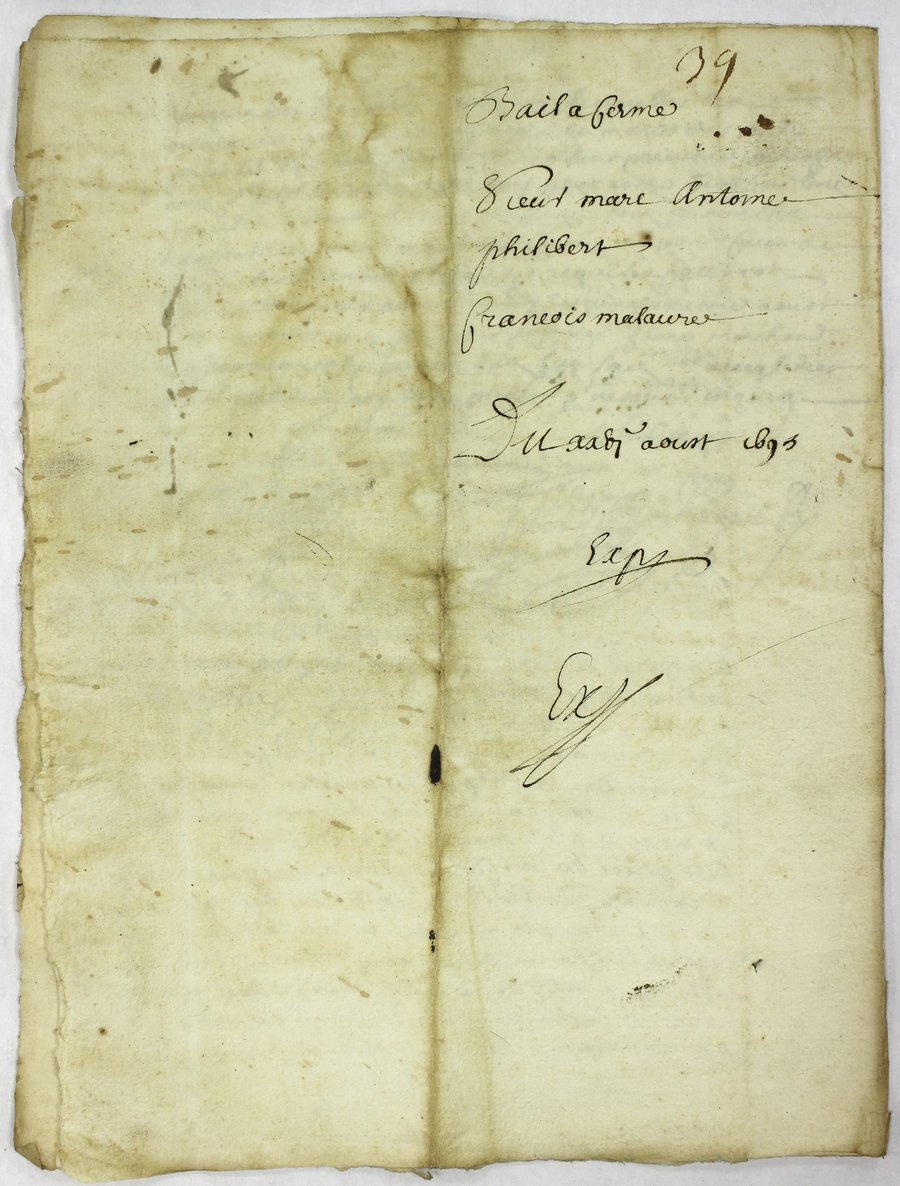 39
Bail a ferme
Sieur marc Antoine
philibert
francois malaure
Du xxvj aoust 1695
Exp
Ex